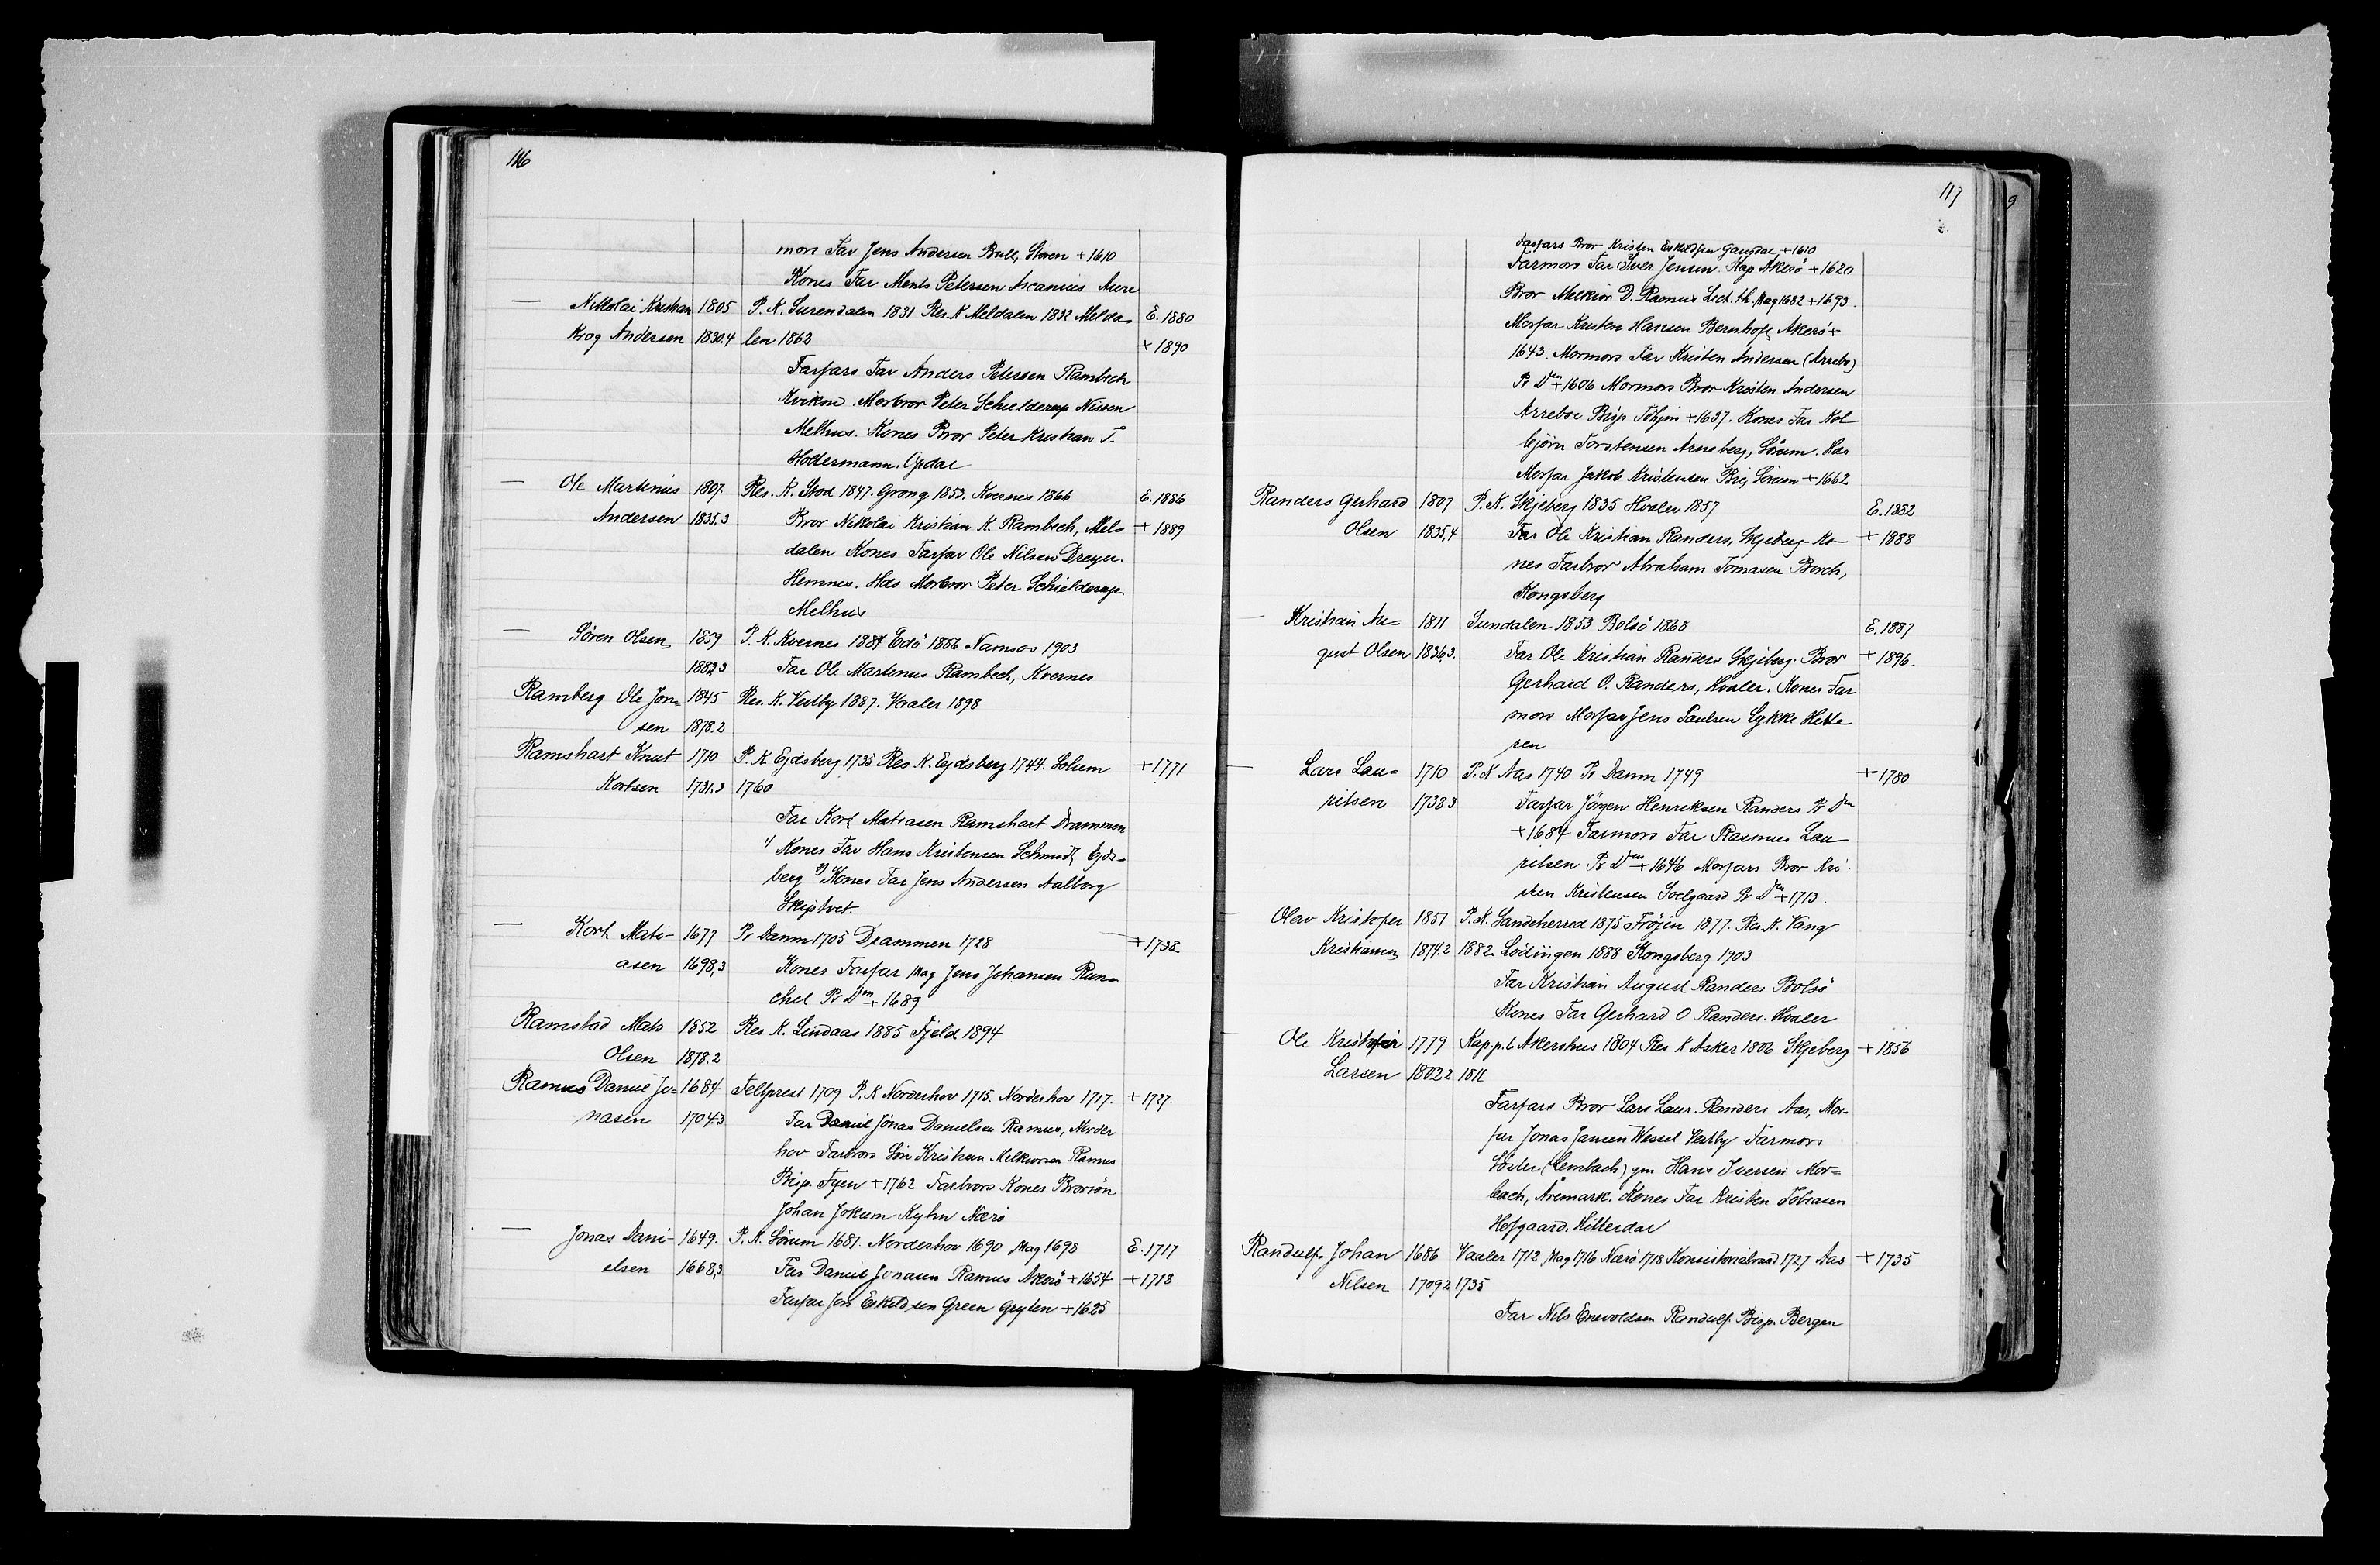 116
mors Far Jens Andersen Bull, Storen + 1610
Kones Far Ments Petersen Ascanius Aure
— Nikolai Kristian 1805 P. K. Surendalen 1831 Res. K Meldalen 1832 Melda- E. 1880
Krog Andersen 1830.4 len 1862 + 1890
Farfars Far Anders Petersen Rambech
Kvikne. Morbror Peter Schielderup Nissen
Melhus. Kones Bror Peter Kristian T.
Holtermann. Opdal
— Ole Martinus 1807. Res. K. Stod 1847. Grong 1853. Kvernes 1866 E. 1886
Andersen 1835.3 Bror Nikolai Kristian K. Rambech, Mel- + 1889
dalen Kones Farfar Ole Nilsen Dreyer.
Hemnes. Hds Morbror Peter Schielderup
Melhus
— Sören Olsen 1859 P. K. Kvernes 1884 Edö 1886 Namsos 1903
1882.3 Far Ole Martinus Rambech, Kvernes
Ramberg Ole Jon= 1845 Res. K. Vestby 1887. Vaaler 1898
sen 1878.2
Ramshart Knut 1710 P. K. Ejdsberg 1735 Res. K. Ejdsberg 1744. Solum + 1771
Kortsen 1731.3 1760
Far Kort Matiasen Ramshart Drammen
1) Kones Far Hans Kristensen Schmidt, Ejds=
berg 2) Kones Far Jens Andersen Aalborg
Skiptvet.
— Kort Mati- 1677 Pr Danm 1705 Drammen 1728 + 1738
asen 1698,3 Kones Farfar Mag Jens Johansen Run=
chel Pr Dm + 1689
Ramstad Mats 1852 Res K. Lindaas 1885 Fjeld 1894
Olsen 1878.2
Ramus Daniel Jo= 1684 Feltprest 1709 P. K Norderhov 1715. Norderhov 1717. + 1727.
nasen 1704.3 Far Daniel Jonas Danielsen Ramus, Norder
hov Farbrors Sön Kristian Melkiorsen Ramus
Bisp. Fyen + 1762 Farbrors Kones Brorsön
Johan Jokum Kyhn Nærö
— Jonas Dani- 1649. P. K. Sörum 1681. Norderhov 1690 Mag 1698 E. 1717
elsen 1668,3 Far Daniel Jonasen Ramus Akerö + 1654 + 1718
Farfar Jon Eskildsen Green Gryten + 1625
117
Farfars Bror Kristen Eskildsen Gausdal, + 1610
Farmors Far Iver Jensen. Kap Akerö + 1620
Bror Melkior D. Ramus Lect. th. Mag 1682 + 1693.
Morfar Kristen Hansen Bernhoft, Akerö +
1643. Mormors Far Kristen Andersen (Arrebo)
Pr Dm + 1606 Mormors Bror Kristen Andersen
Arreboe Bisp Tóhjm + 1637. Kones Far Kol
björn Torstensen Arneberg, Sörum. Hds
Morfar Jakob Kristensen Bri, Sörum + 1662
Randers Gerhard 1807 P. K. Skjeberg 1835 Hvaler 1857 E. 1882
Olsen 1835,4 Far Ole Kristian Randers, Skjeberg. Ko- + 1888
nes Farbror Abraham Tomasen Borch,
Kongsberg
— Kristian Au= 1811 Sundalen 1853 Bolsö 1868 E. 1887
gust Olsen 1836,3. Far Ole Kristian Randers Skjeberg. Bror + 1896.
Gerhard O. Randers, Hvaler. Kones Far
mors Morfar Jens Paulsen Lykke Hitte
ren
— Lars Lau= 1710 P. K Aas 1740 Pr Danm 1749 + 1780
ritsen 1738 3 Farfar Jörgen Henriksen Randers Pr Dm
+ 1684 Farmors Far Rasmus Lau
ritsen Pr Dm + 1646 Morfars Bror Kri-
sten Kristensen Soelgaard Pr Dm + 1713.
— Olav Kristofer 1851 P. K. Sandeherred 1875 Fröjen 1877. Res. K. Vang
Kristiansen 1874.2 1882 Lödingen 1888 Kongsberg 1903
Far Kristian August Randers Bolsö
Kones Far Gerhard O Randers. Hvaler
Ole Kristofer 1779 Kap. p. l. Akershus 1804 Res K Asker 1806 Skjeberg + 1856
Larsen 1802 2 1811
Farfars Bror Lars Laur. Randers Aas, Mor-
far Jonas Jansen Wessel Vestby Farmors
Söster (Lembach) gm Hans Iversen Mor=
bach, Aremark. Kones Far Kristen Tobiasen
Hofgaard. Hitterdal
Randulf Johan 1686 Vaaler 1712 Mag 1716 Nærö 1718 Konsistorialraad 1727 Aas + 1735
Nilsen 1709 2 1735
Far Nils Enevoldsen Randulf Bisp. Bergen
9